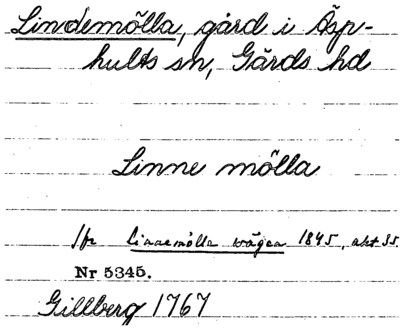 Lindemölla, gård i Äsp-
hults sn, Gärds hd
Linne mölla
Jfr Linnemölla vägen 1845, akt 35.
Nr 5345.
Gillberg 1767